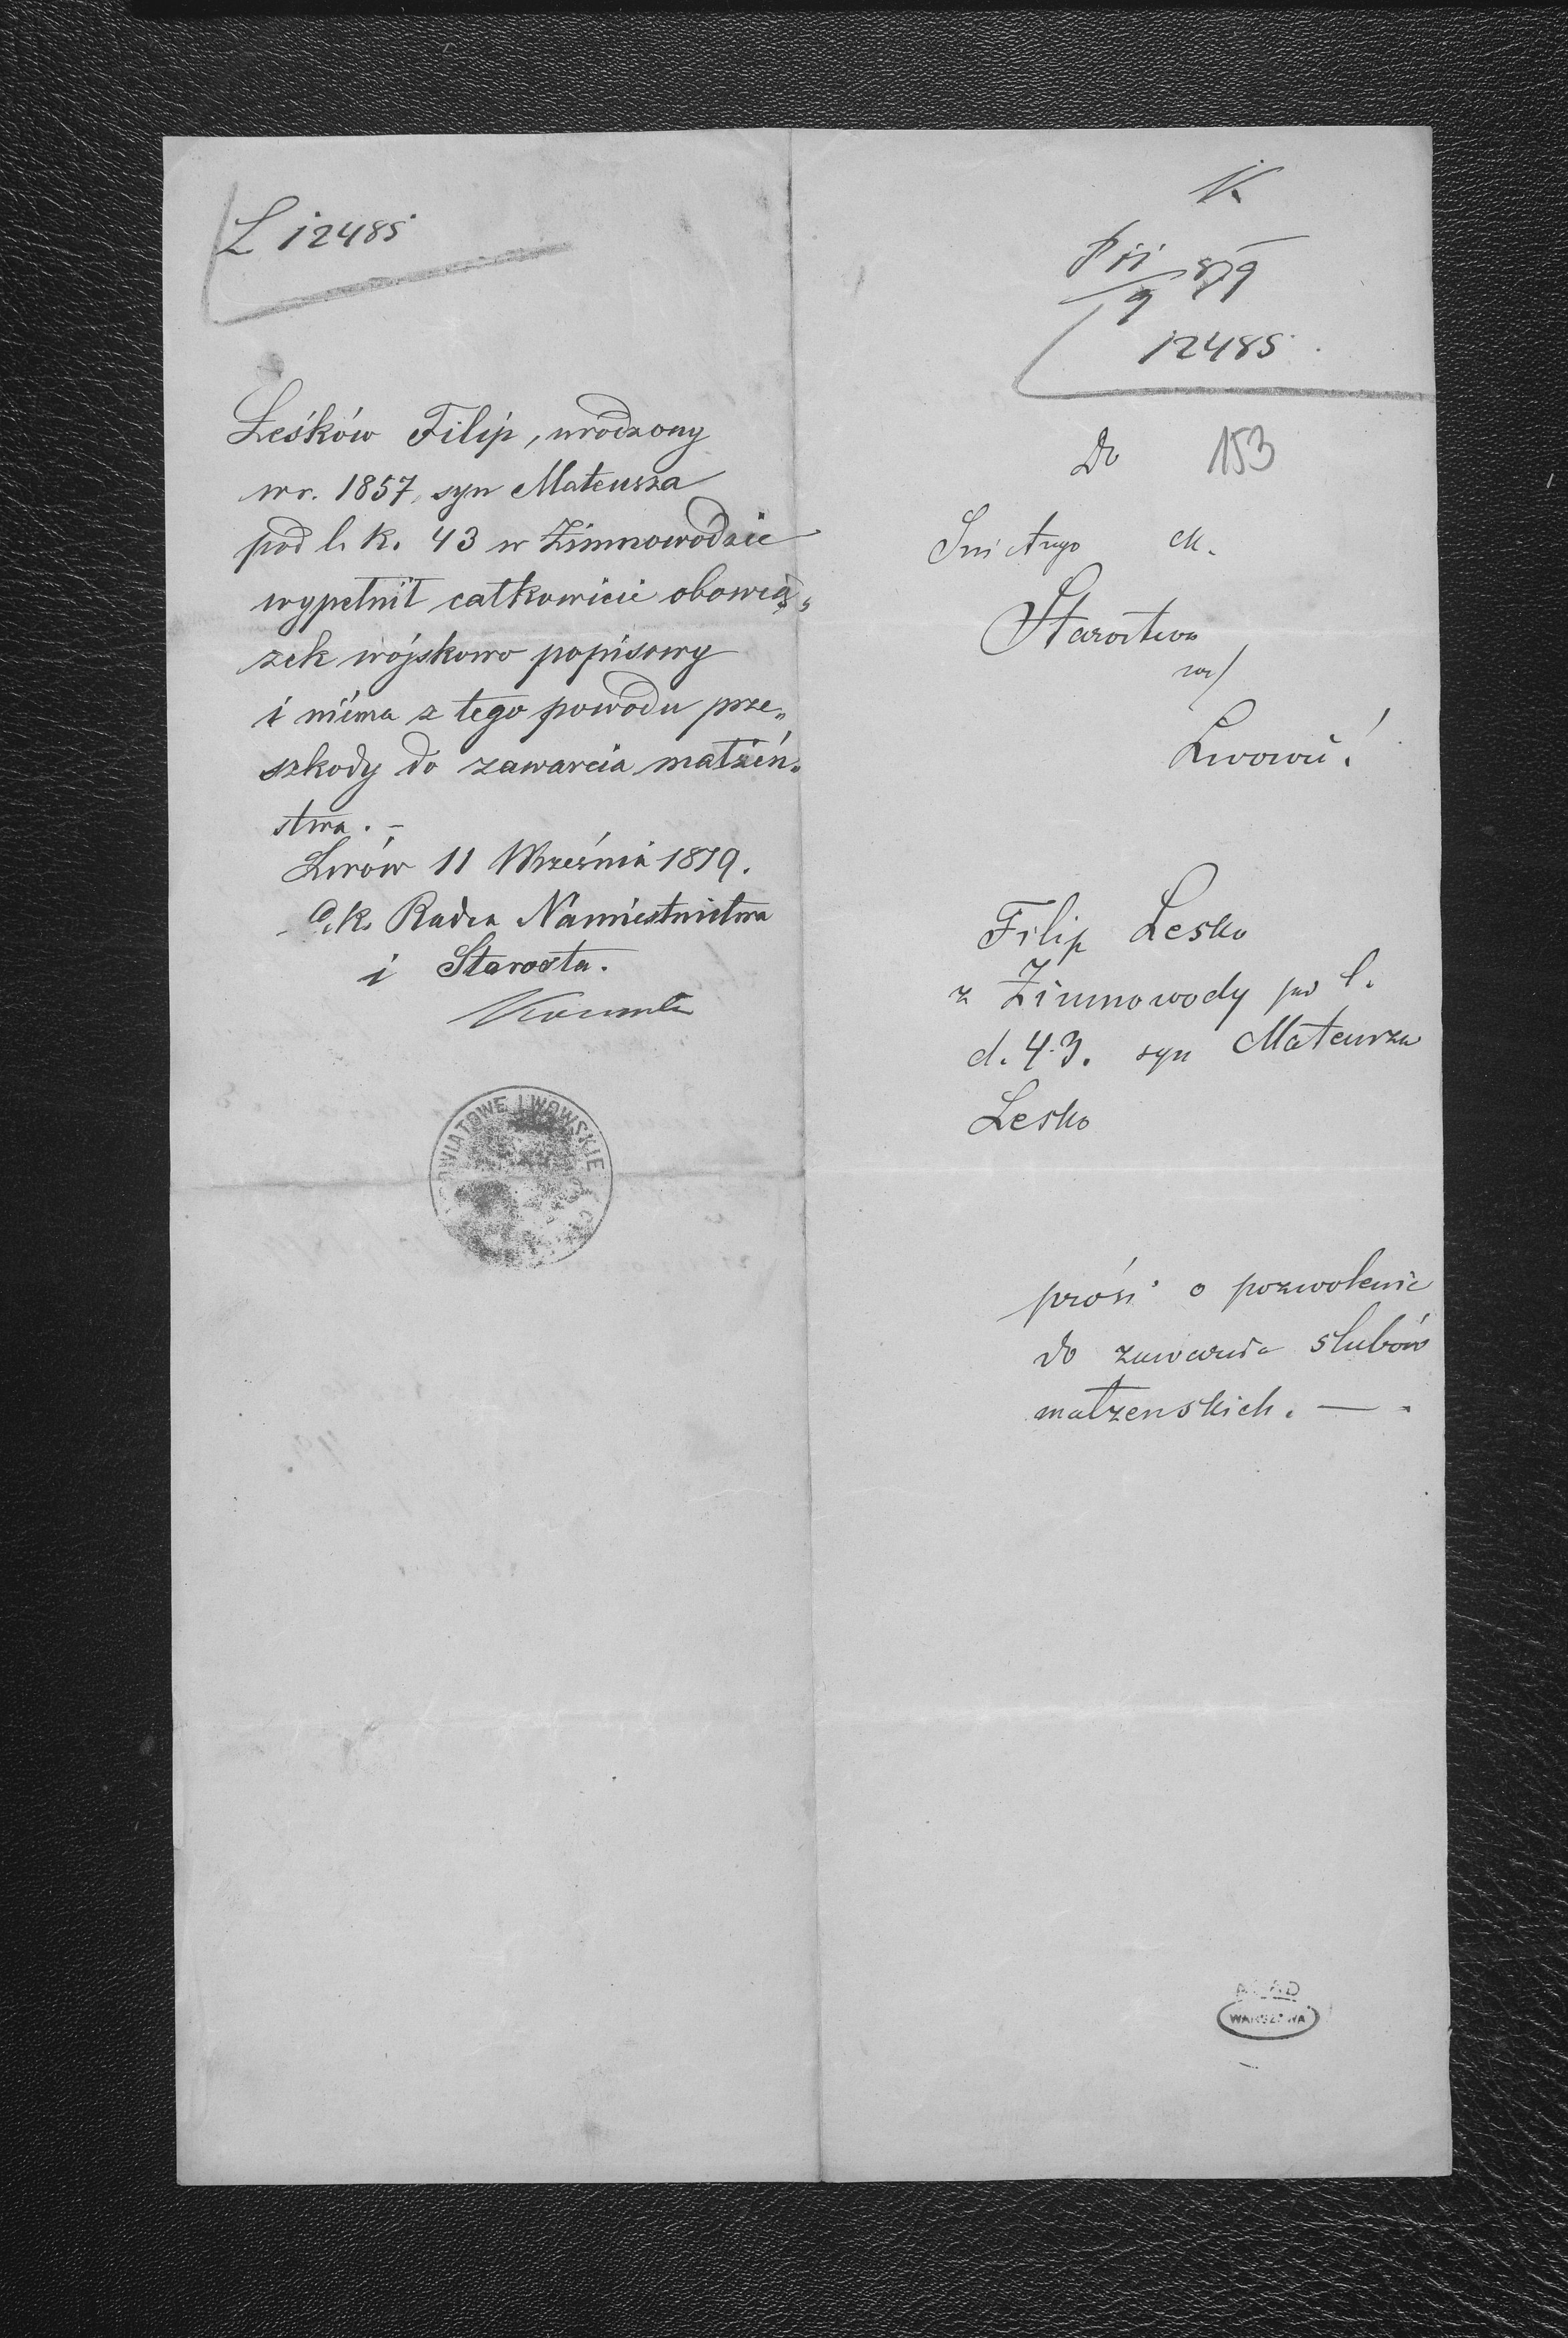 L 12485
Leśków Filip, urodzony
w r. 1857, syn Mateusza
pod l. k. 43 w Zimnowodzie
wypełnił całkowicie obowią„
zek wójskowo popisowy
i niéma z tego powodu prze„
szkody do zawarcia małżeń„
stwa. –
Lwów 11 Września 1879.
C. k. Radca Namiestnictwa
i Starosta.
POWIATOWE LWOWSKIE
11/9 879
12485
Do 153
Starostwa
we/
Lwowie!
Filip Lesko
z Zimnowody pod l.
d. 43. syn Mateusza
Lesko
prósi o pozwolenie
do zawarcia slubów
małzenskich. —
AGAD
WARSZAWA